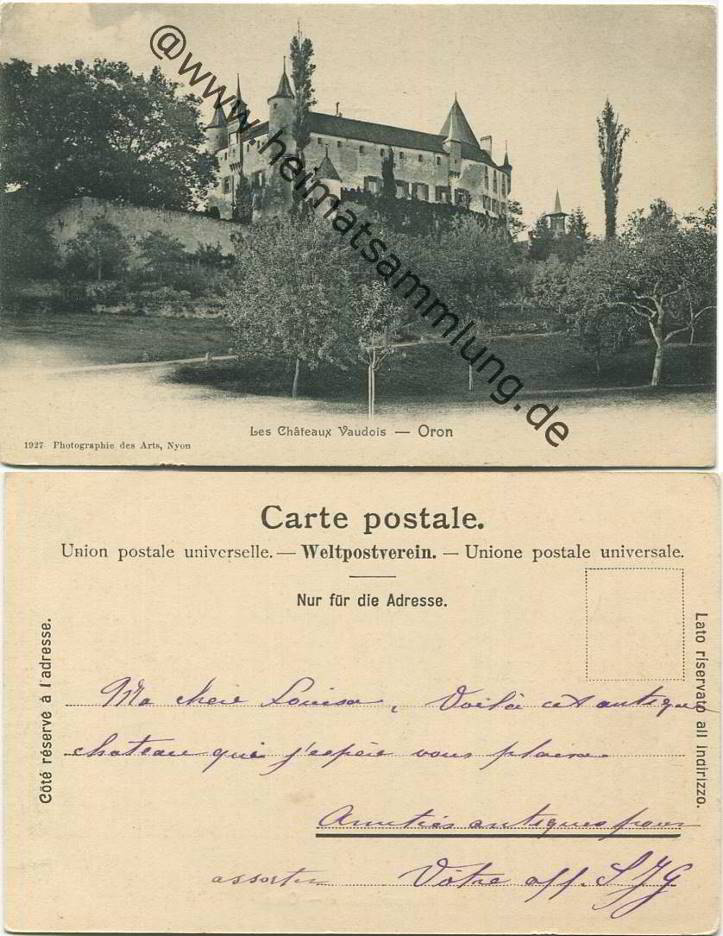 @www.heimatsammlung.de
Les Châteaux Vaudois — Oron
1927 Photographie des Arts, Nyon
Carte postale.
Union postale universelle. — Weltpostverein. — Unione postale universale.
Nur für die Adresse.
Côté réservé à l'adresse.
Lato riservato all indirizzo.
Ma chère Louisa, Voilà cet antique
chateau qui j'espère vous plaira
Amitiés antiques pour
assortir Vôtre aff. SJG